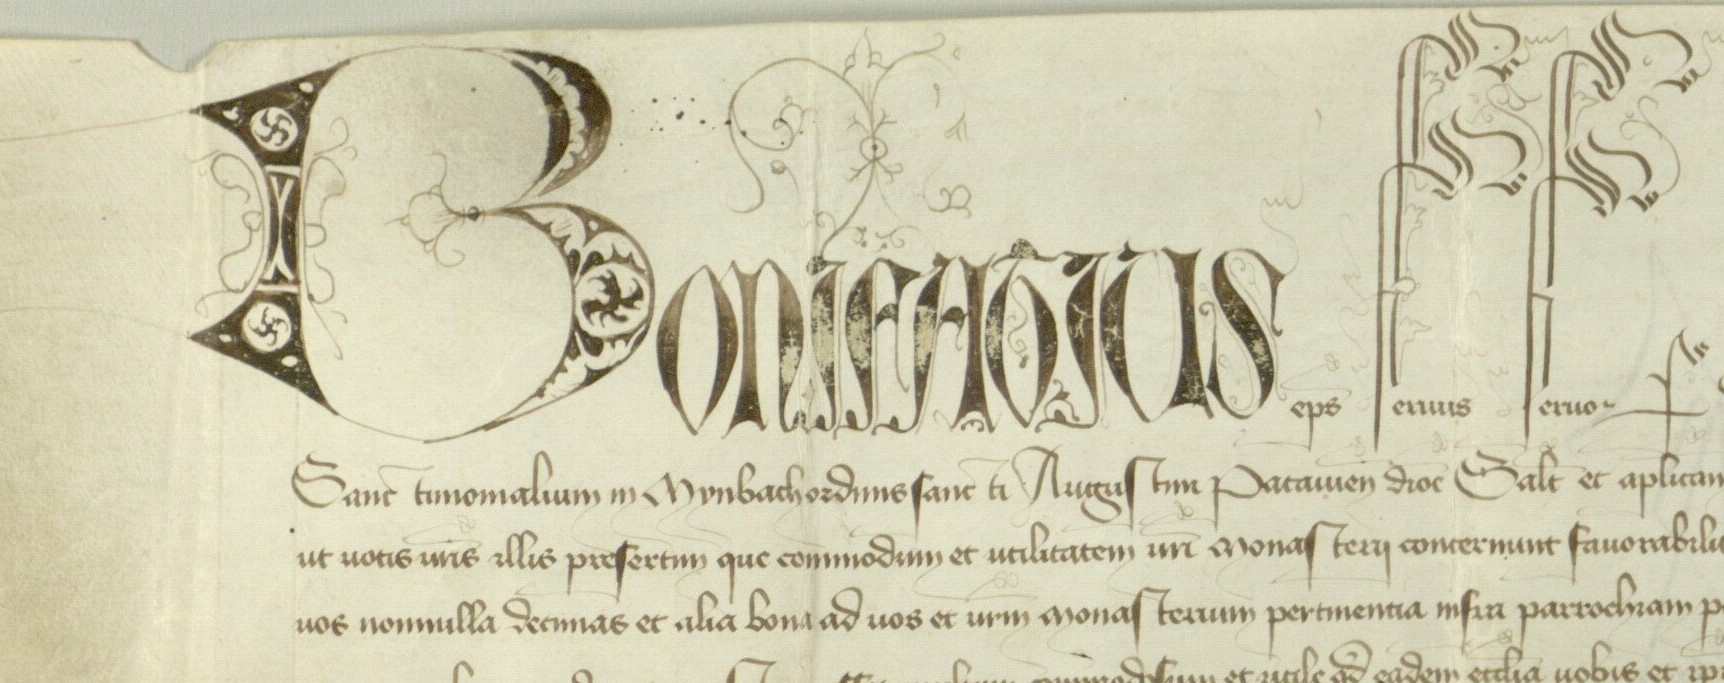 Bonifatius eps Seruus Seruor
Sanctimonialium in Mynbach ordinis sancti Augustini Patauien dioc Salt et aplicam
ut uotis uris illis presertim que commodum et utilitatem uri Monasterij concernunt fauorabili
uos nonnulla decimas et alia bona ad uos et urm Monasterium pertinentia infra parrochiam
et utile qd eadem ecclia uobis et